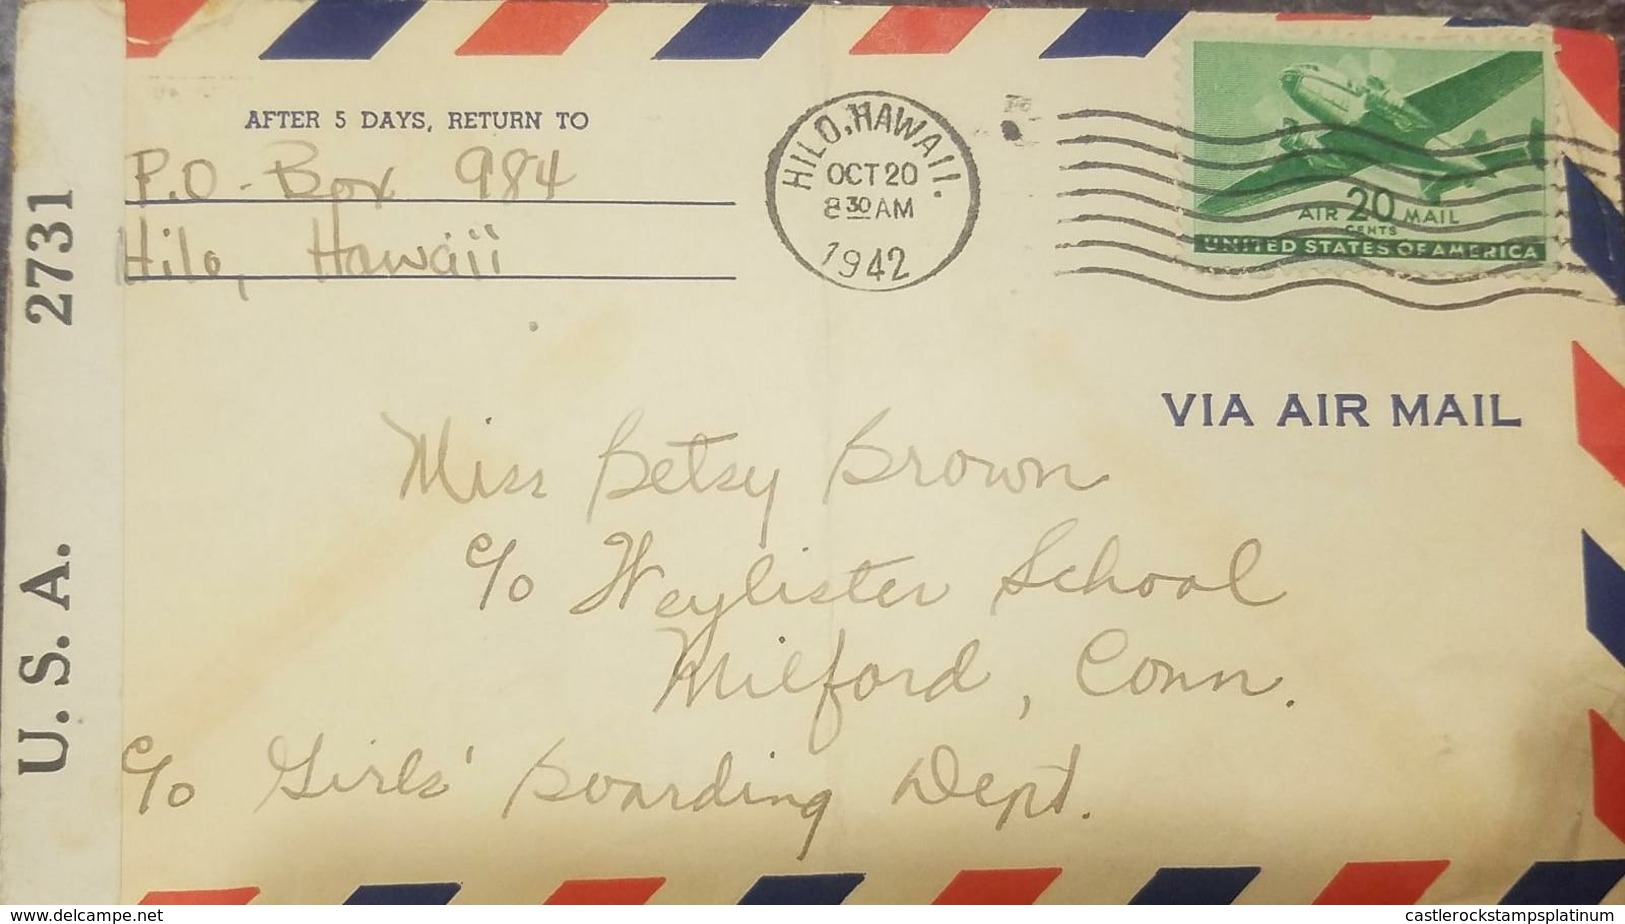 AFTER 5 DAYS, RETURN TO
P.O. Box 984
Hilo, Hawaii
HILO, HAWAII.
OCT 20
8 30 AM
1942
AIR 20 MAIL
CENTS
UNITED STATES OF AMERICA
VIA AIR MAIL
Miss Betsy Brown
c/o Weylister School
Milford, Conn.
c/o Girls' Boarding Dept.
U.S.A. 2731
www.delcampe.net
castlerockstampsplatinum